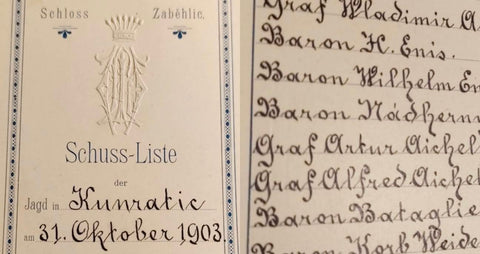 Schloss Zaběhlic.
Schuss-Liste
der
Jagd in Kunratic
am 31. Oktober 1903.
Graf Wladimir
Baron H. Enis.
Baron Wilhelm
Baron
Graf Artur
Graf Alfred
Baron Bataglie
Baron Korb Weide